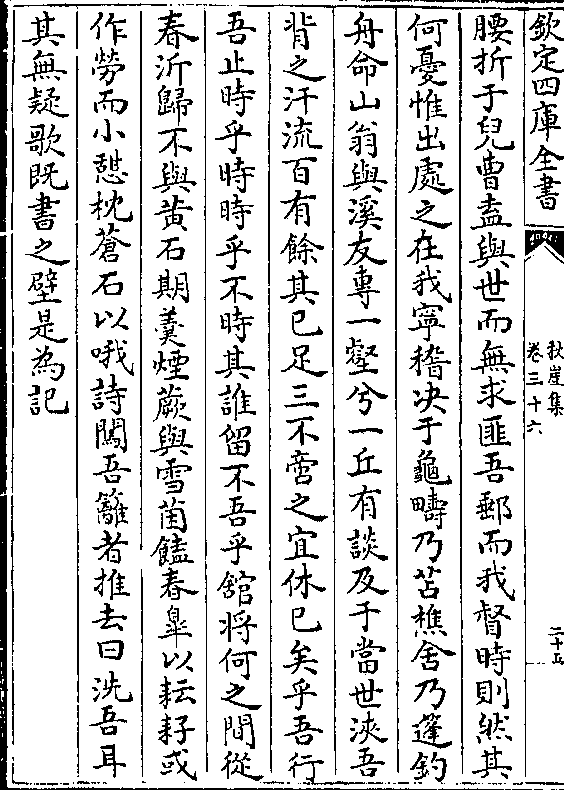 欽定四庫全書
秋崖集
卷三十六
二十五
腰折于兒曹盍與世而無求匪吾郵而我督時則然其
何憂惟出處之在我寧稽决于龜疇乃苫樵舍乃篷釣
舟命山翁與溪友專一壑兮一丘有談及于當世浹吾
背之汗流百有餘其已足三不啻之宜休已矣乎吾行
吾止時乎時時乎不時其誰留不吾乎舘將何之間從
春沂歸不與黄石期羮煙蕨與雪菌饁春臯以耘耔或
作勞而小憇枕蒼石以哦詩闖吾籬者推去曰洗吾耳
其無疑歌既書之壁是為記